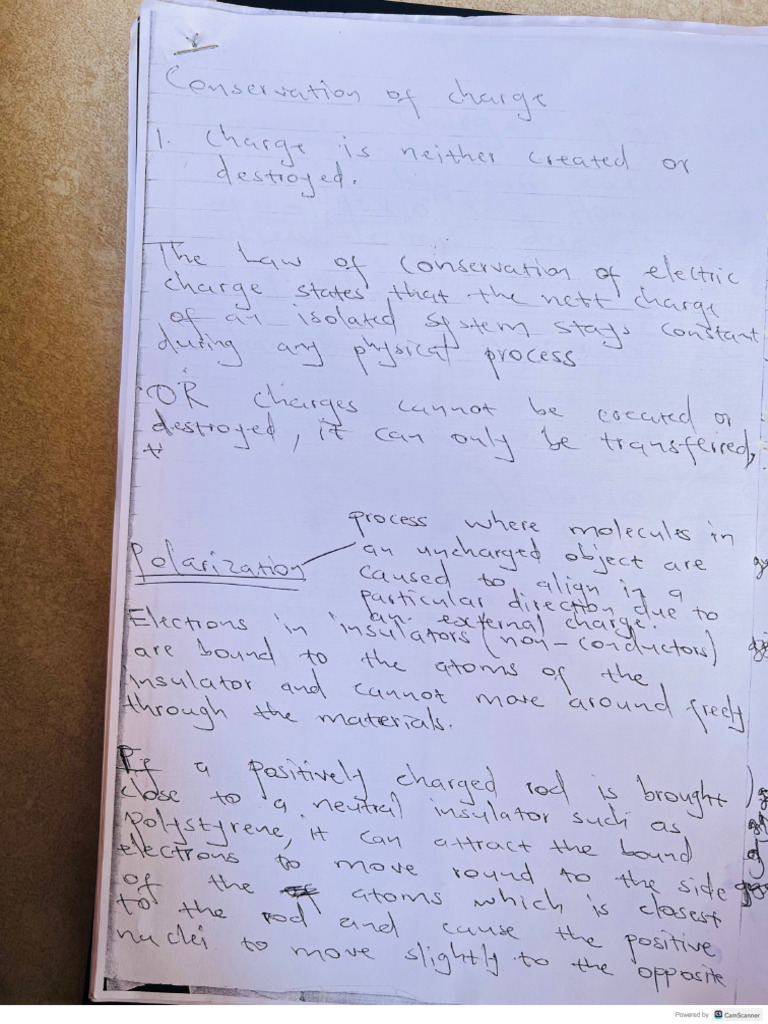 Conservation of charge
1. Charge is neither created or
destroyed.
The Law of conservation of electric
charge states that the nett charge
of an isolated system stays constant
during any physical process
OR charges cannot be created or
destroyed, it can only be transferred,
Polarization
process where molecules in
an uncharged object are
caused to align in a
particular direction due to
an external charge.
Electrons in insulators (non-conductors)
are bound to the atoms of the
insulator and cannot move around freely
through the materials.
If a positively charged rod is brought
close to a neutral insulator such as
polystyrene, it can attract the bound
electrons to move round to the side
of the atoms which is closest
to the rod and cause the positive
nuclei to move slightly to the opposite
Powered by CamScanner